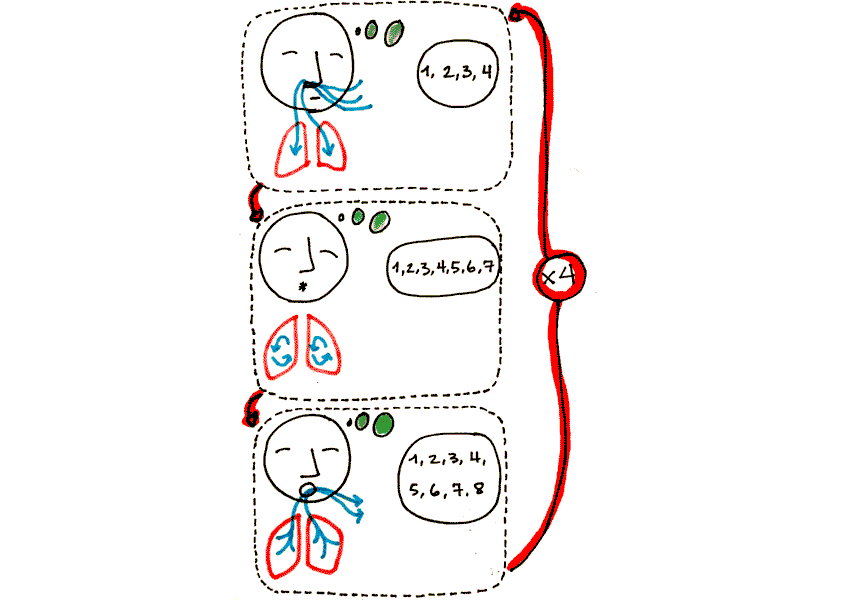 1, 2, 3, 4
1, 2, 3, 4, 5, 6, 7
1, 2, 3, 4,
5, 6, 7, 8
x4